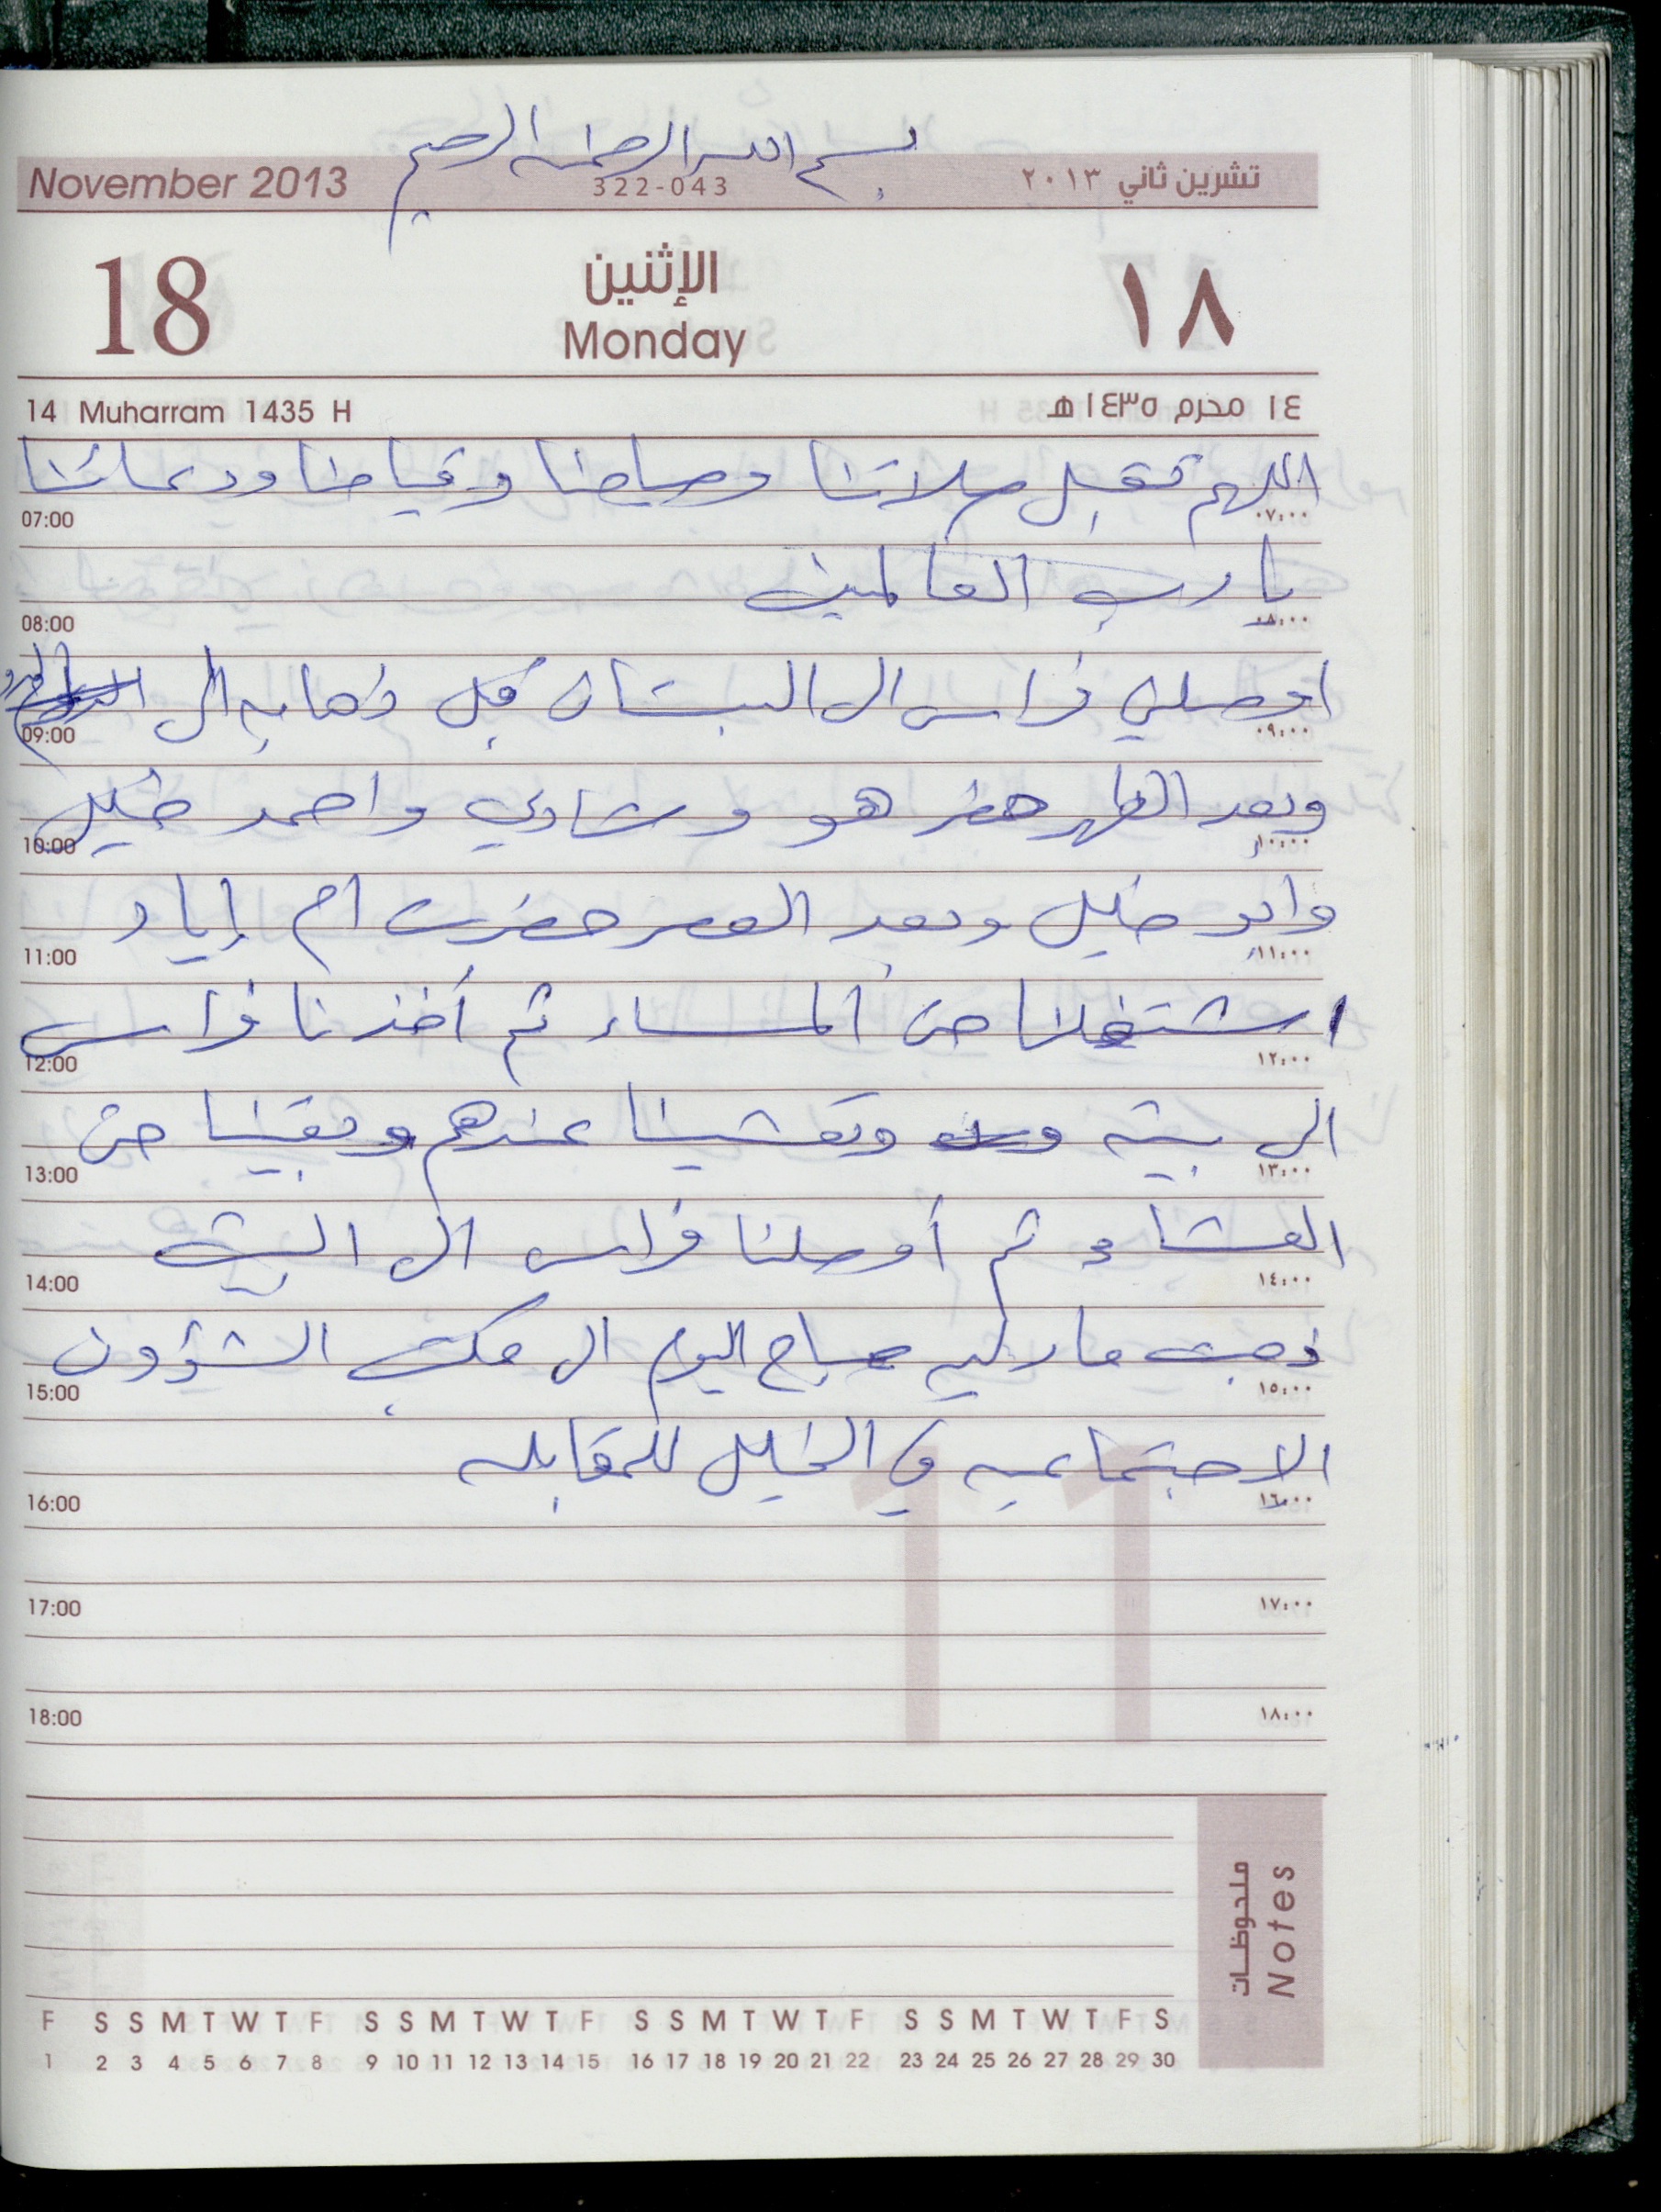 بسم الله الرحمن الرحيم
November 2013 322-043 تشرين ثاني ٢٠١٣
18 الإثنين ١٨
Monday
14 Muharram 1435 H ١٤ محرم ١٤٣٥ هـ
اللهم تقبل صلاتنا وصيامنا وقيامنا ودعائنا
07:00 ٠٧:٠٠
يا رب العالمين
08:00 ٠٨:٠٠
اوصلني فراس الى البستان قبل ذهابه الى
09:00 ٠٩:٠٠
وبعد الظهر حضر هو وشادي واحمد خليل
10:00 ١٠:٠٠
وابو خليل وبعد العصر حضرت ام إياد
11:00 ١١:٠٠
اشتغلنا حتى المساء ثم أخذنا فراس
12:00 ١٢:٠٠
الى بيته وتعشينا عندهم وبقينا حتى
13:00 ١٣:٠٠
العشاء ثم أوصلنا فراس الى البيت
14:00 ١٤:٠٠
ذهبت صباح اليوم الى مكتب الشؤون
15:00 ١٥:٠٠
الاجتماعيه في الخليل للمقابله
16:00 ١٦:٠٠
17:00 ١٧:٠٠
18:00 ١٨:٠٠
ملحوظات
Notes
F S S M T W T F S S M T W T F S S M T W T F S S M T W T F S
1 2 3 4 5 6 7 8 9 10 11 12 13 14 15 16 17 18 19 20 21 22 23 24 25 26 27 28 29 30